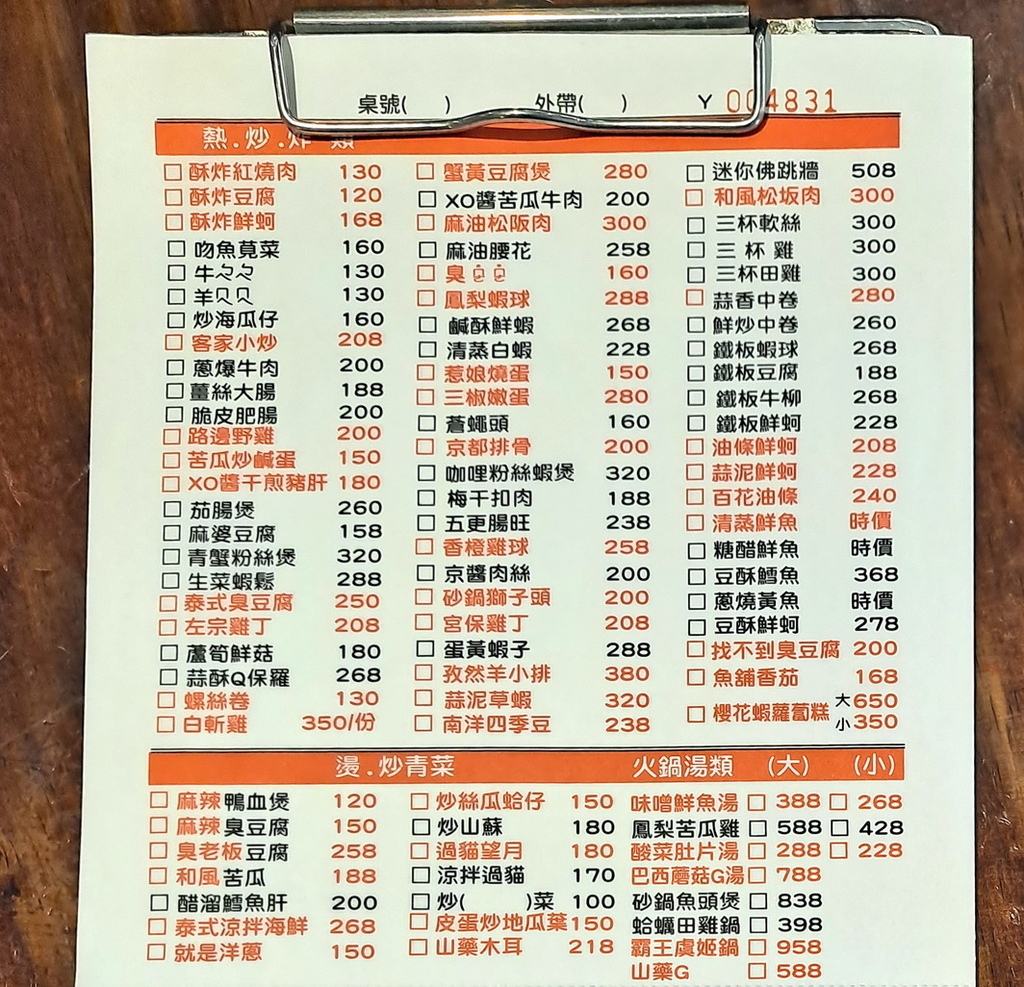 桌號( ) 外帶( ) Y 004831
熱.炒.炸 類
酥炸紅燒肉 130
酥炸豆腐 120
酥炸鮮蚵 168
吻魚莧菜 160
牛ㄆㄆ 130
羊ㄦㄦ 130
炒海瓜仔 160
客家小炒 208
蔥爆牛肉 200
薑絲大腸 188
脆皮肥腸 200
路邊野雞 200
苦瓜炒鹹蛋 150
XO醬干煎豬肝 180
茄腸煲 260
麻婆豆腐 158
青蟹粉絲煲 320
生菜蝦鬆 288
泰式臭豆腐 250
左宗雞丁 208
蘆筍鮮菇 180
蒜酥Q保羅 268
螺絲卷 130
白斬雞 350/份
蟹黃豆腐煲 280
XO醬苦瓜牛肉 200
麻油松阪肉 300
麻油腰花 258
臭 160
鳳梨蝦球 288
鹹酥鮮蝦 268
清蒸白蝦 228
惹娘燒蛋 150
三椒嫩蛋 280
蒼蠅頭 160
京都排骨 200
咖哩粉絲蝦煲 320
梅干扣肉 188
五更腸旺 238
香橙雞球 258
京醬肉絲 200
砂鍋獅子頭 200
宮保雞丁 208
蛋黃蝦子 288
孜然羊小排 380
蒜泥草蝦 320
南洋四季豆 238
迷你佛跳牆 508
和風松坂肉 300
三杯軟絲 300
三 杯 雞 300
三杯田雞 300
蒜香中卷 280
鮮炒中卷 260
鐵板蝦球 268
鐵板豆腐 188
鐵板牛柳 268
鐵板鮮蚵 228
油條鮮蚵 208
蒜泥鮮蚵 228
百花油條 240
清蒸鮮魚 時價
糖醋鮮魚 時價
豆酥鱈魚 368
蔥燒黃魚 時價
豆酥鮮蚵 278
找不到臭豆腐 200
魚舖香茄 168
櫻花蝦蘿蔔糕 大650
小350
燙.炒青菜
麻辣鴨血煲 120
麻辣臭豆腐 150
臭老板豆腐 258
和風苦瓜 188
醋溜鱈魚肝 200
泰式涼拌海鮮 268
就是洋蔥 150
炒絲瓜蛤仔 150
炒山蘇 180
過貓望月 180
涼拌過貓 170
炒( )菜 100
皮蛋炒地瓜葉 150
山藥木耳 218
火鍋湯類 (大) (小)
味噌鮮魚湯 388 268
鳳梨苦瓜雞 588 428
酸菜肚片湯 288 228
巴西蘑菇G湯 788
砂鍋魚頭煲 838
蛤蠣田雞鍋 398
霸王虞姬鍋 958
山藥G 588